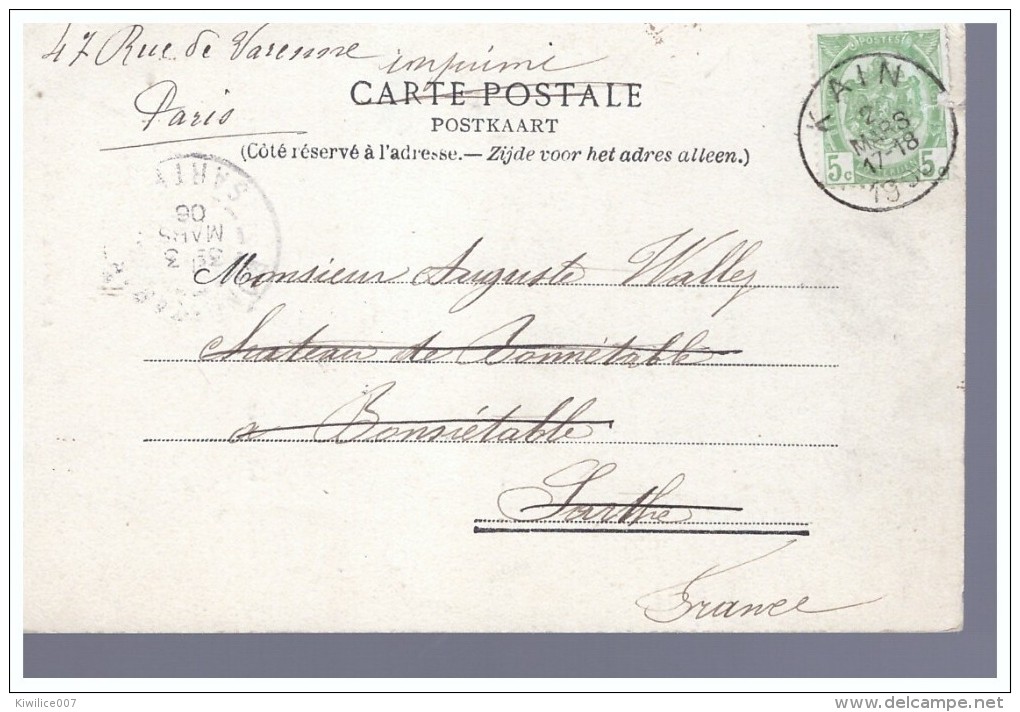 47 Rue de Varenne
Paris
imprimé
CARTE POSTALE
POSTKAART
(Côté réservé à l'adresse.— Zijde voor het adres alleen.)
POSTES
5c 5c
KAIN
MARS
17-18
19
SARTHE
3
MARS
06
Monsieur Auguste Walley
Chateau de Bonnétable
à Bonnétable
Sarthe
France
Kiwilice007
www.delcampe.net